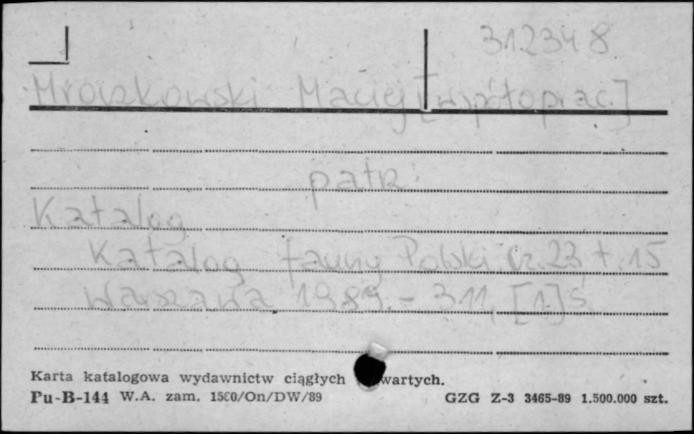 312348
Mroczkowski Maciej [współoprac.]
patrz:
Katalog
Katalog fauny Polski cz. 23 t. 15
Warszawa 1989. - 311, [1] s.
Karta katalogowa wydawnictw ciągłych wartych.
Pu-B-144 W.A. zam. 1500/On/DW/89 GZG Z-3 3465-89 1.500.000 szt.